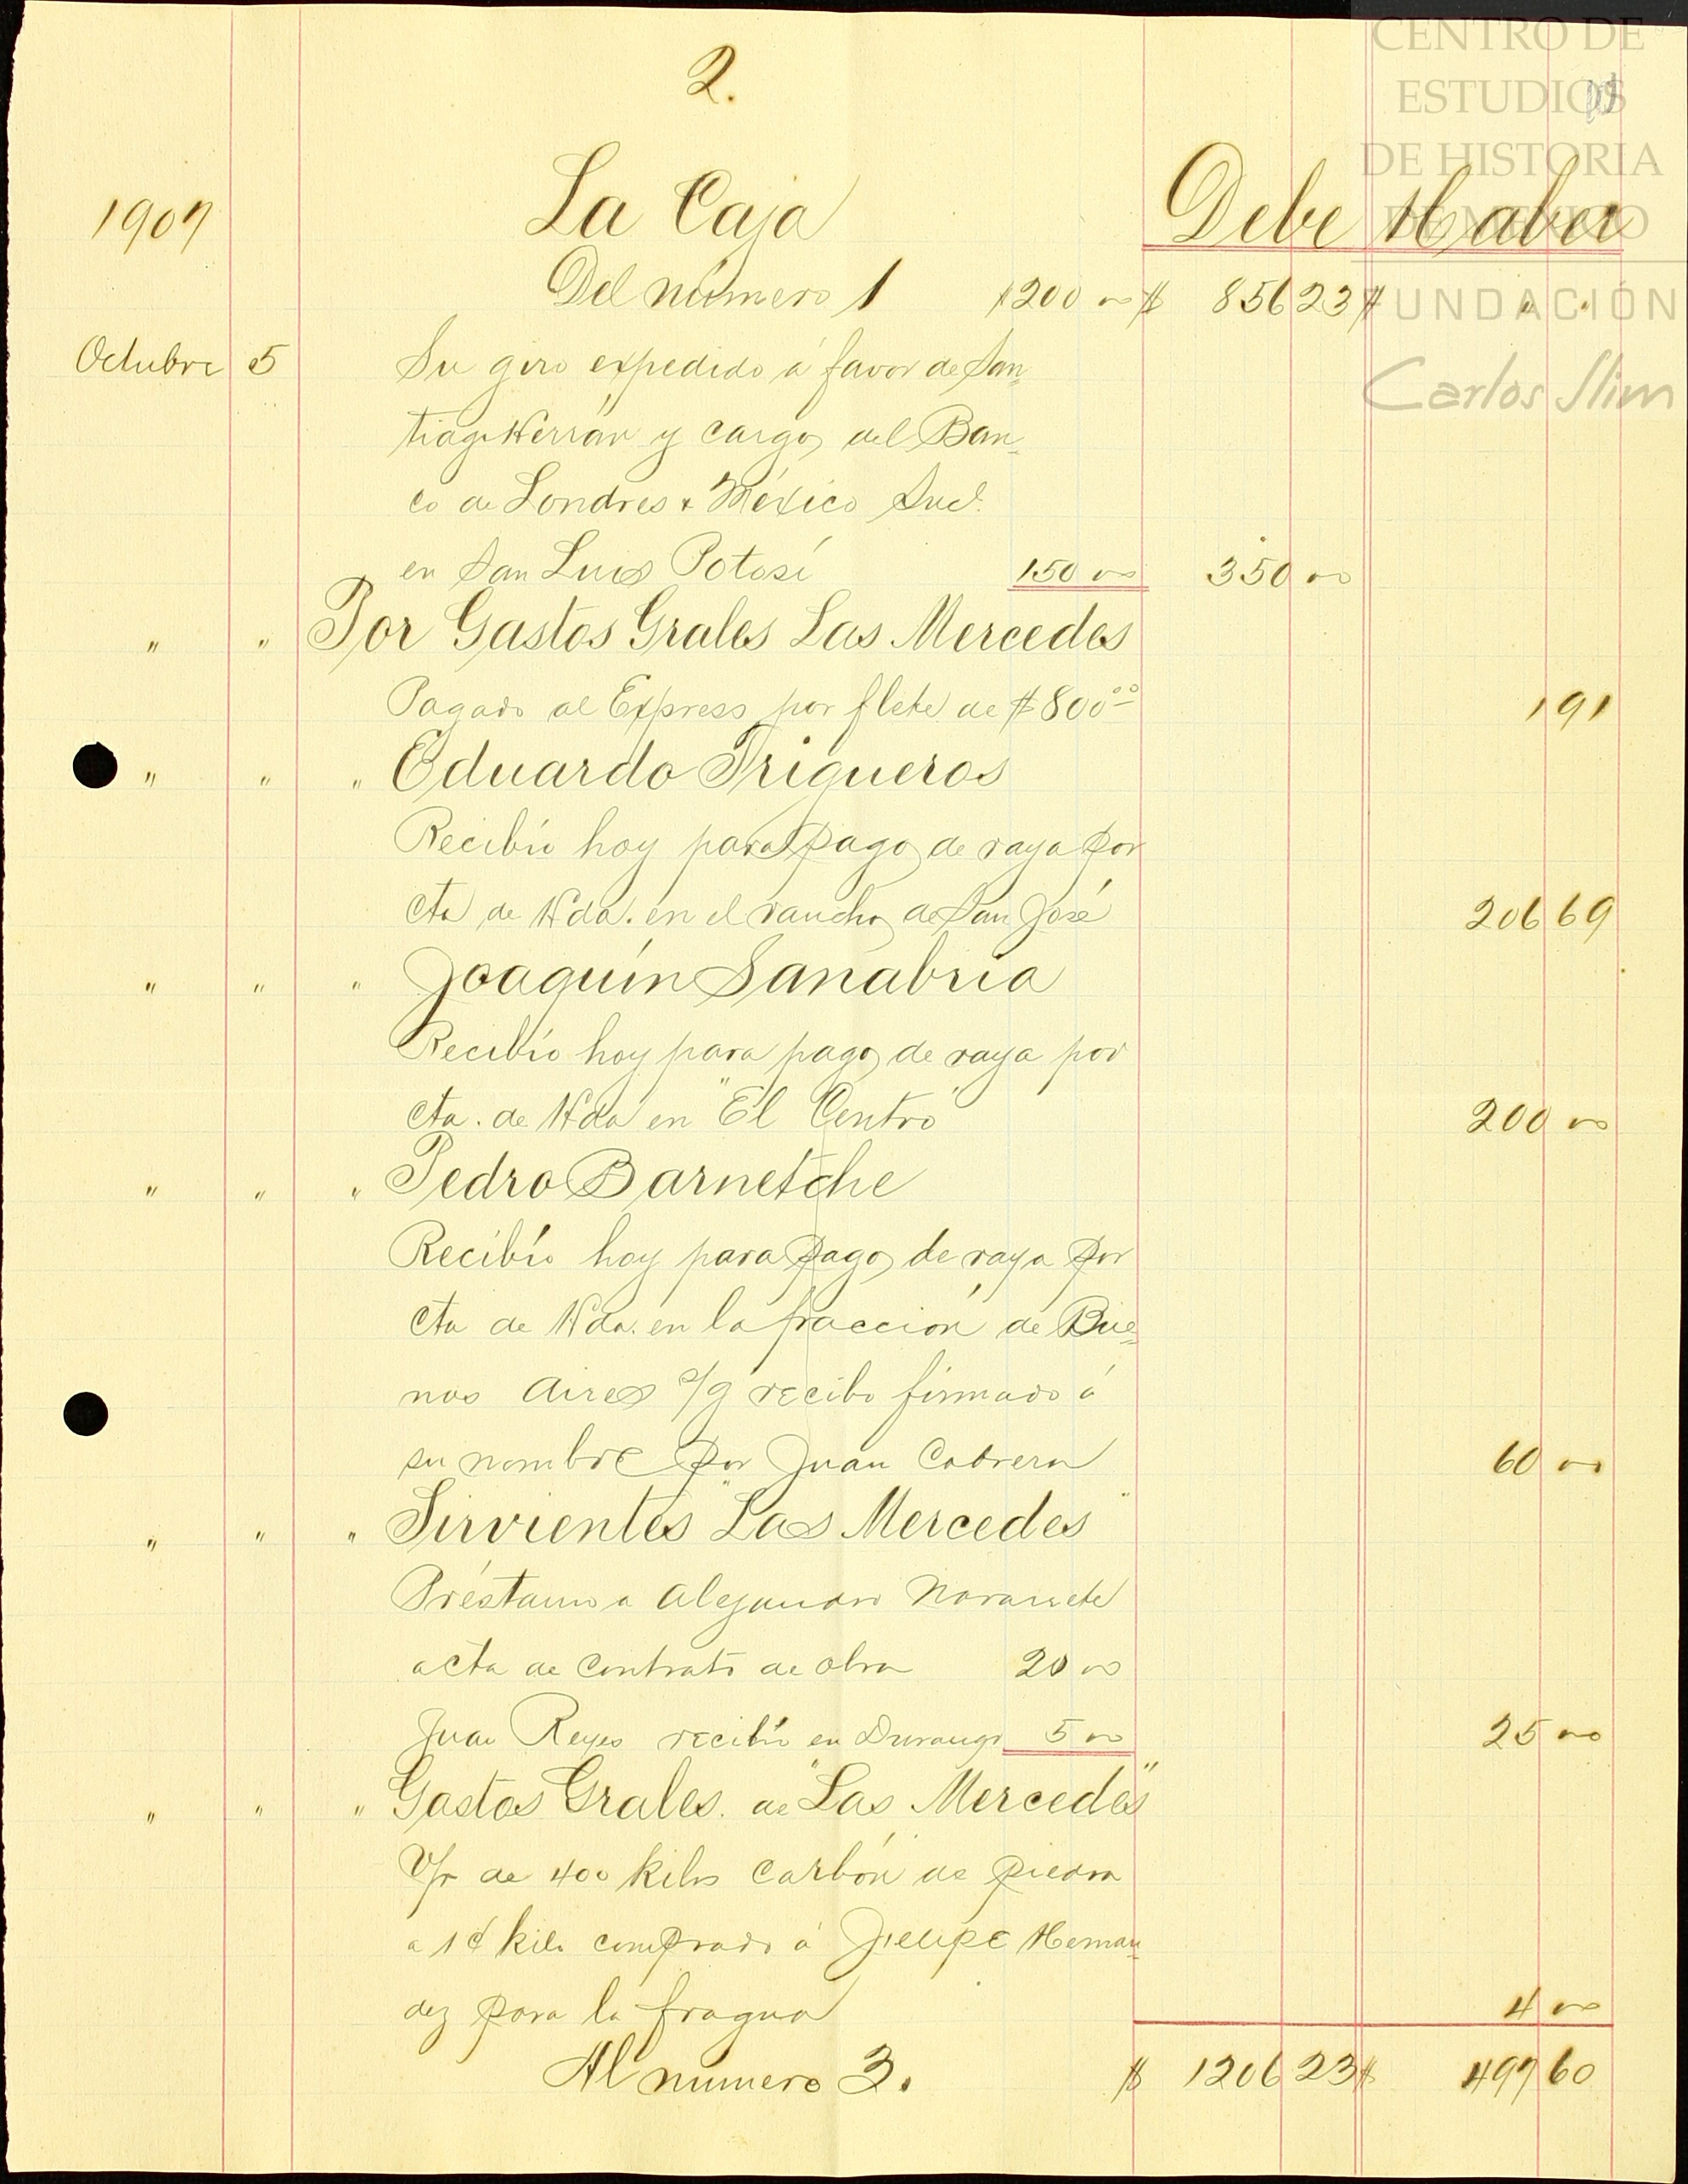 2.
CENTRO DE
ESTUDIOS
DE HISTORIA
DE MÉXICO
FUNDACIÓN
Carlos Slim
1907 La Caja Debe Haber
Del número 1 $200 00 $ 856 23 $ " "
Octubre 5 Su giro expedido á favor de San=
tiago Herrán y cargo del Ban=
co de Londres & México Suc!
en San Luis Potosí 150 00 350 00
" " Por Gastos Grales Las Mercedes
Pagado al Express por flete de $800.00 1 91
" " " Eduardo Trigueros
Recibío hoy para pago de raya por
cta de Hda. en el rancho de San José 206 69
" " " Joaquín Sanabria
Recibío hoy para pago de raya por
cta. de Hda en "El Centro" 200 00
" " " Pedro Barnetche
Recibío hoy para pago de raya por
cta de Hda. en la fracción de Bue=
nos Aires s/g recibo firmado á
su nombre por Juan Cabrera 60 00
" " " Sirvientes "Las Mercedes"
Préstamo a Alejandro Navarrete
a cta de contrato de obra 20 00
Juan Reyes recibío en Durango 5 00 25 00
" " " Gastos Grales. de "Las Mercedes"
V/r de 400 kilos carbón de piedra
a 1¢ kilo comprado á Felipe Hernan=
dez para la fragua 4 00
Al número 3. $ 1206 23 $ 497 60